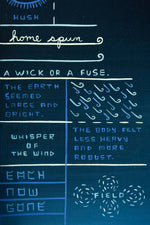 HUSH
home spun
A WICK OR A FUSE.
THE EARTH
SEEMED
LARGE AND
BRIGHT.
WHISPER
OF THE
WIND
THE BODY FELT
LESS HEAVY
AND MORE
ROBUST.
EACH
NOW
GONE
FIELD